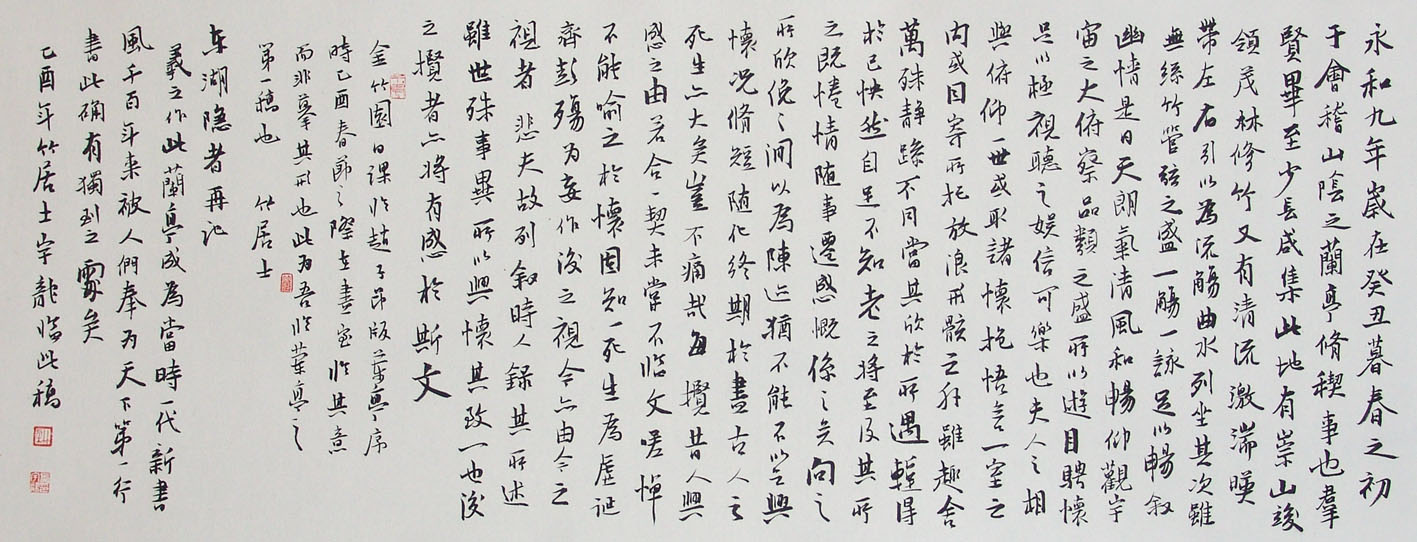 永和九年歲在癸丑暮春之初
于會稽山陰之蘭亭脩稧事也羣
賢畢至少長咸集此地有崇山峻
領茂林修竹又有清流激湍暎
帶左右引以為流觴曲水列坐其次雖
無絲竹管弦之盛一觴一詠足以暢敘
幽情是日天朗氣清風和暢仰觀宇
宙之大俯察品類之盛所以遊目騁懷
足以極視聽之娛信可樂也夫人之相
與俯仰一世或取諸懷抱悟言一室之
内或因寄所托放浪形骸之外雖趣舍
萬殊靜躁不同當其欣於所遇輕得
於己怏然自足不知老之將至及其所
之既惓情随事遷感慨係之矣向之
所欣俛之間以為陳迹猶不能不以之興
懷況脩短随化終期於盡古人云
死生亦大矣豈不痛哉每攬昔人興
感之由若合一契未嘗不临文嗟悼
不能喻之於懷固知一死生為虛誕
齊彭殤為妄作後之視今亦由今之
視昔悲夫故列敘時人錄其所述
雖世殊事異所以興懷其致一也後
之攬者亦將有感於斯文
金竹園日課临趙子昂版蘭亭序
時乙酉春節之際在書室临其意
而非摹其形也此為吾临蘭亭之
第一稿也 竹居士
东湖隱者再記
羲之作此蘭亭成為當時一代新書
風千百年来被人們奉為天下第一行
書此确有獨到之處矣
乙酉年竹居士宇龍临此稿